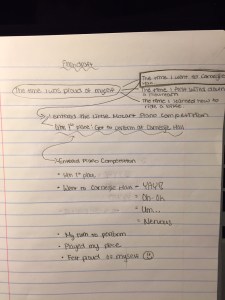 The time I went to Carnegie Hall
The time I was proud of myself
The time I learned how to ride a bike
I entered the Little Mozart Piano Competition
Won 1st place! Got to perform at Carnegie Hall
Entered Piano Competition
Won 1st place
Went to Carnegie Hall =
= Oh-oh
= Um...
= Nervous
My turn to perform
Played my piece
Felt proud of myself